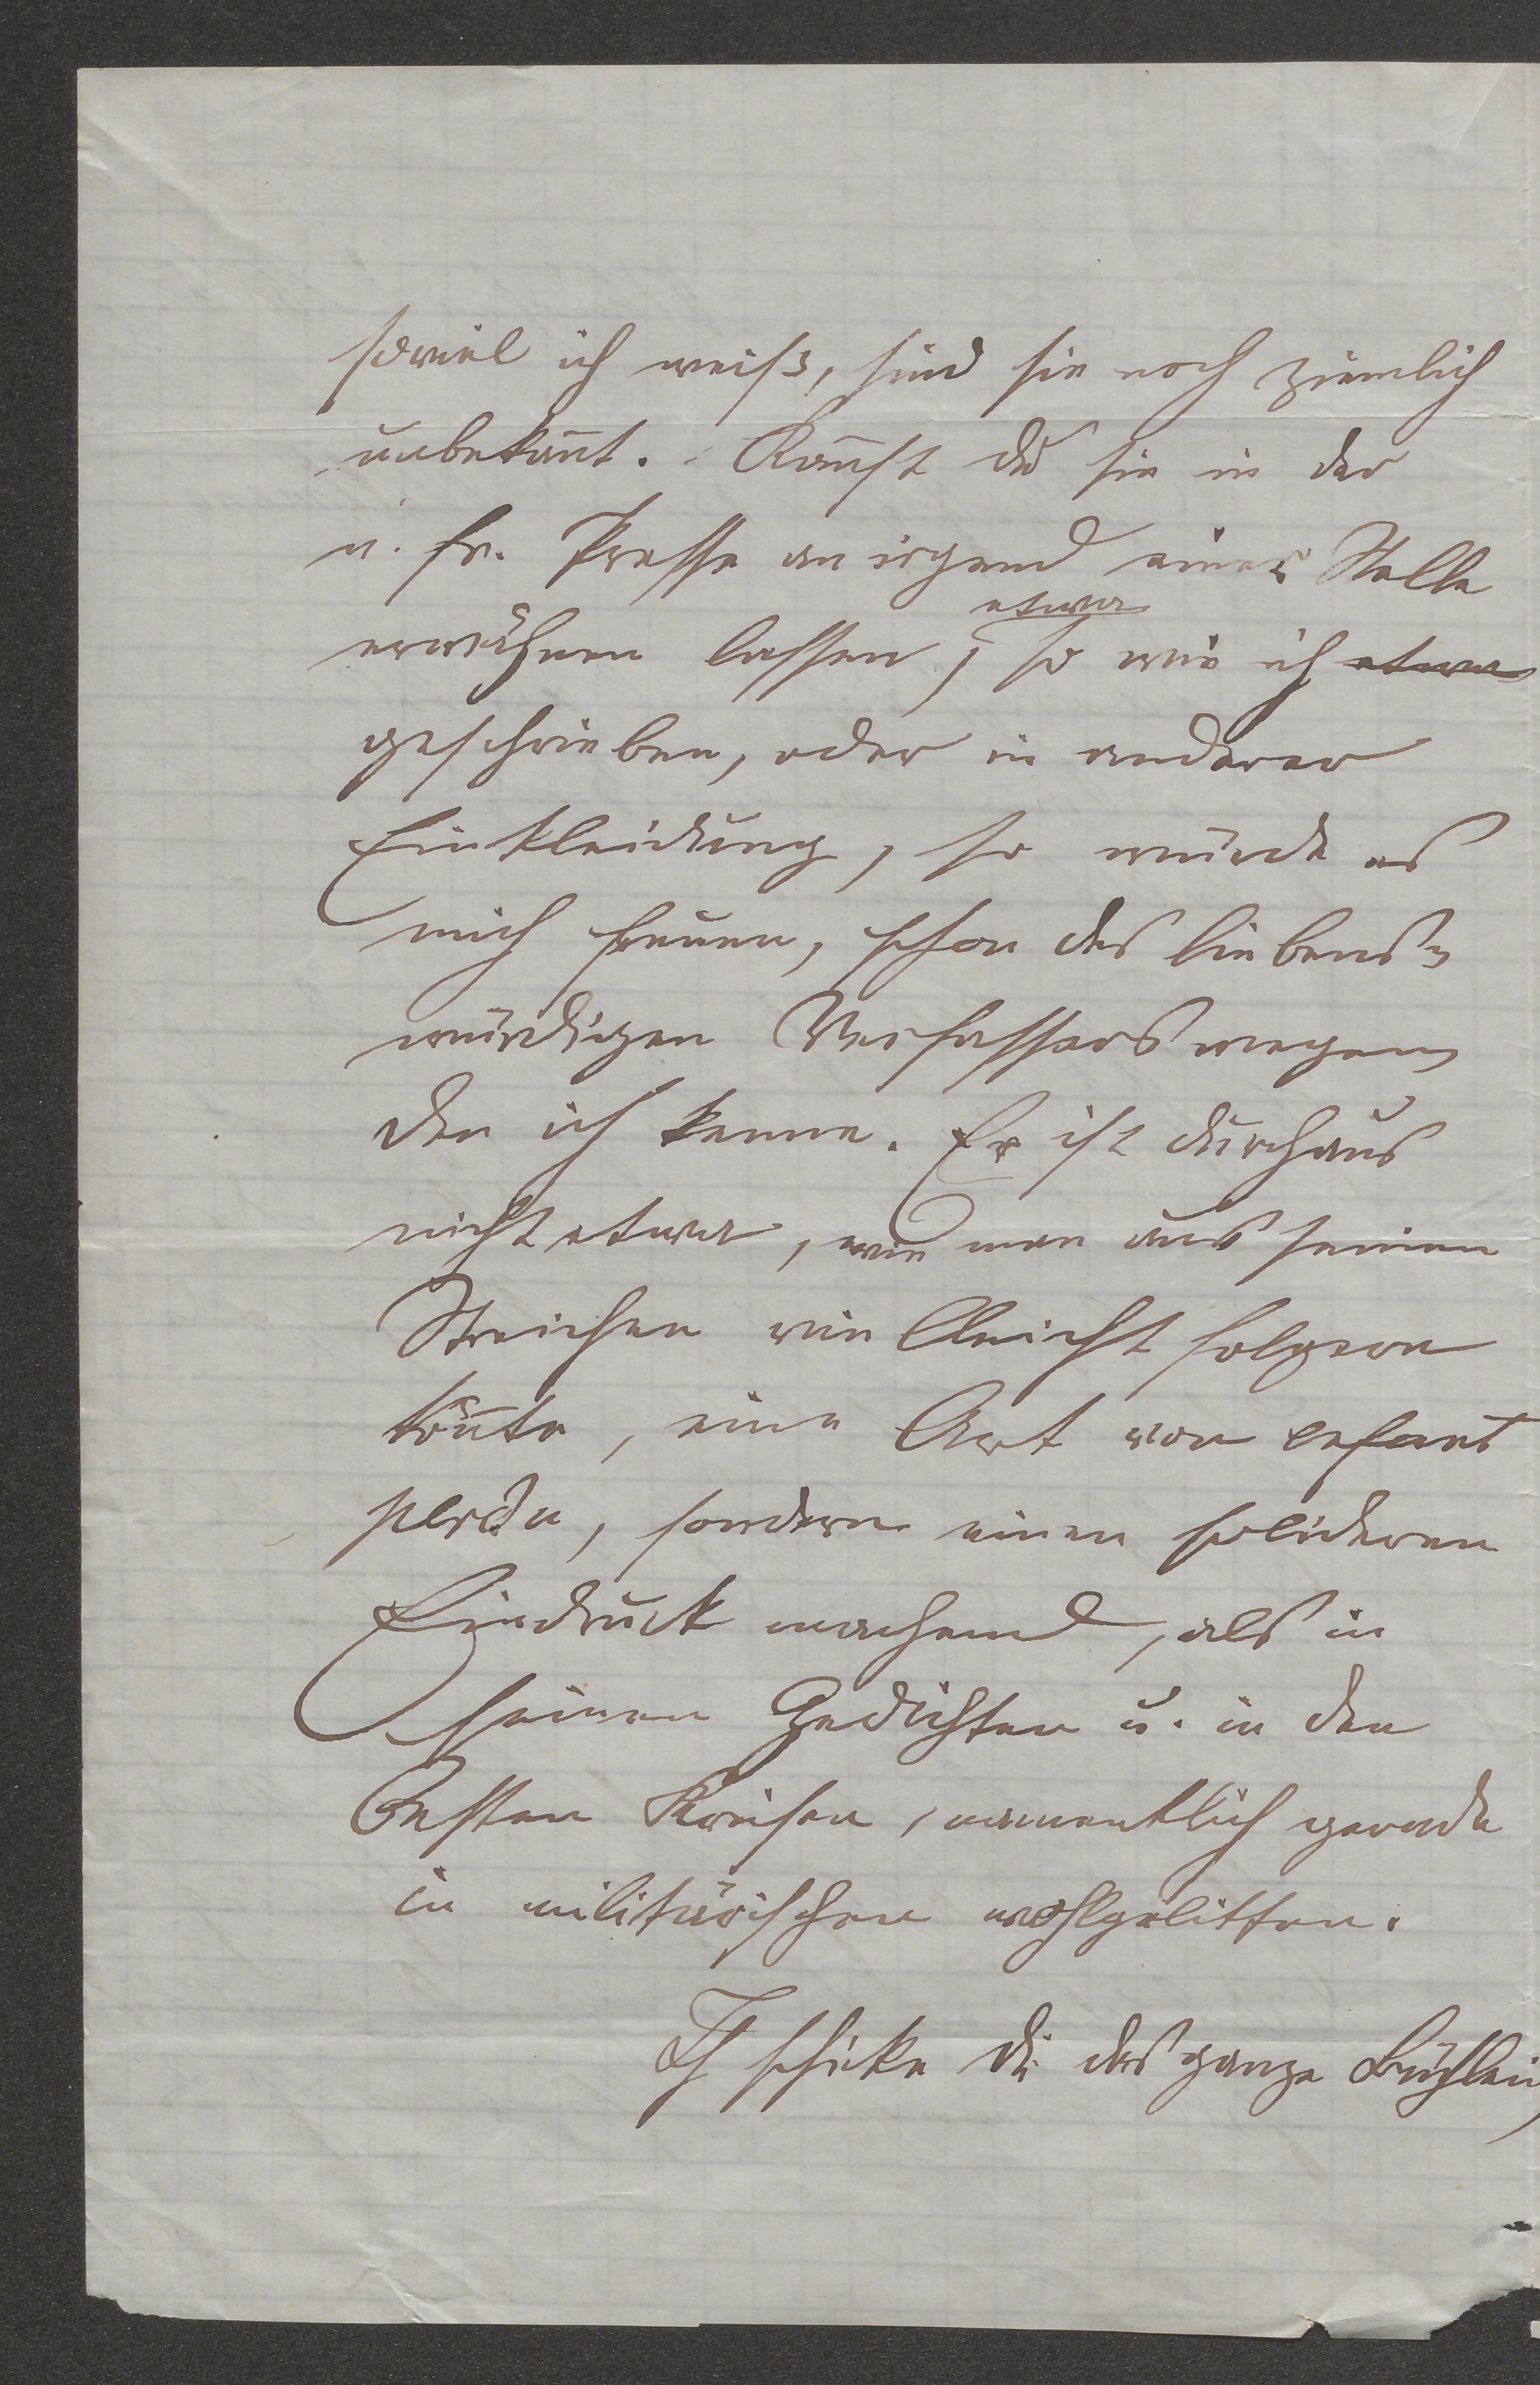 soviel ich weiß, sind sie noch ziemlich
unbekan̅t. Kan̅st du sie in der
n. fr. Presse an irgend einer Stelle
etwa
erwähnen lassen, so wie ich etwa
geschrieben, oder in anderer
Einkleidung, so würde es
mich freuen, schon des liebens-
würdigen Verfassers wegen,
den ich kenne. Er ist durchaus
nicht etwa, wie man aus seinen
Streichen vielleicht folgern
kön̅te, eine Art von enfant
perdu, sondern einen solideren
Eindruck machend, als in
seinen Gedichten u. in den
besten Kreisen, namentlich gerade
in militärischen wohlgelitten.
Ich schicke dir das ganze Büchlein,